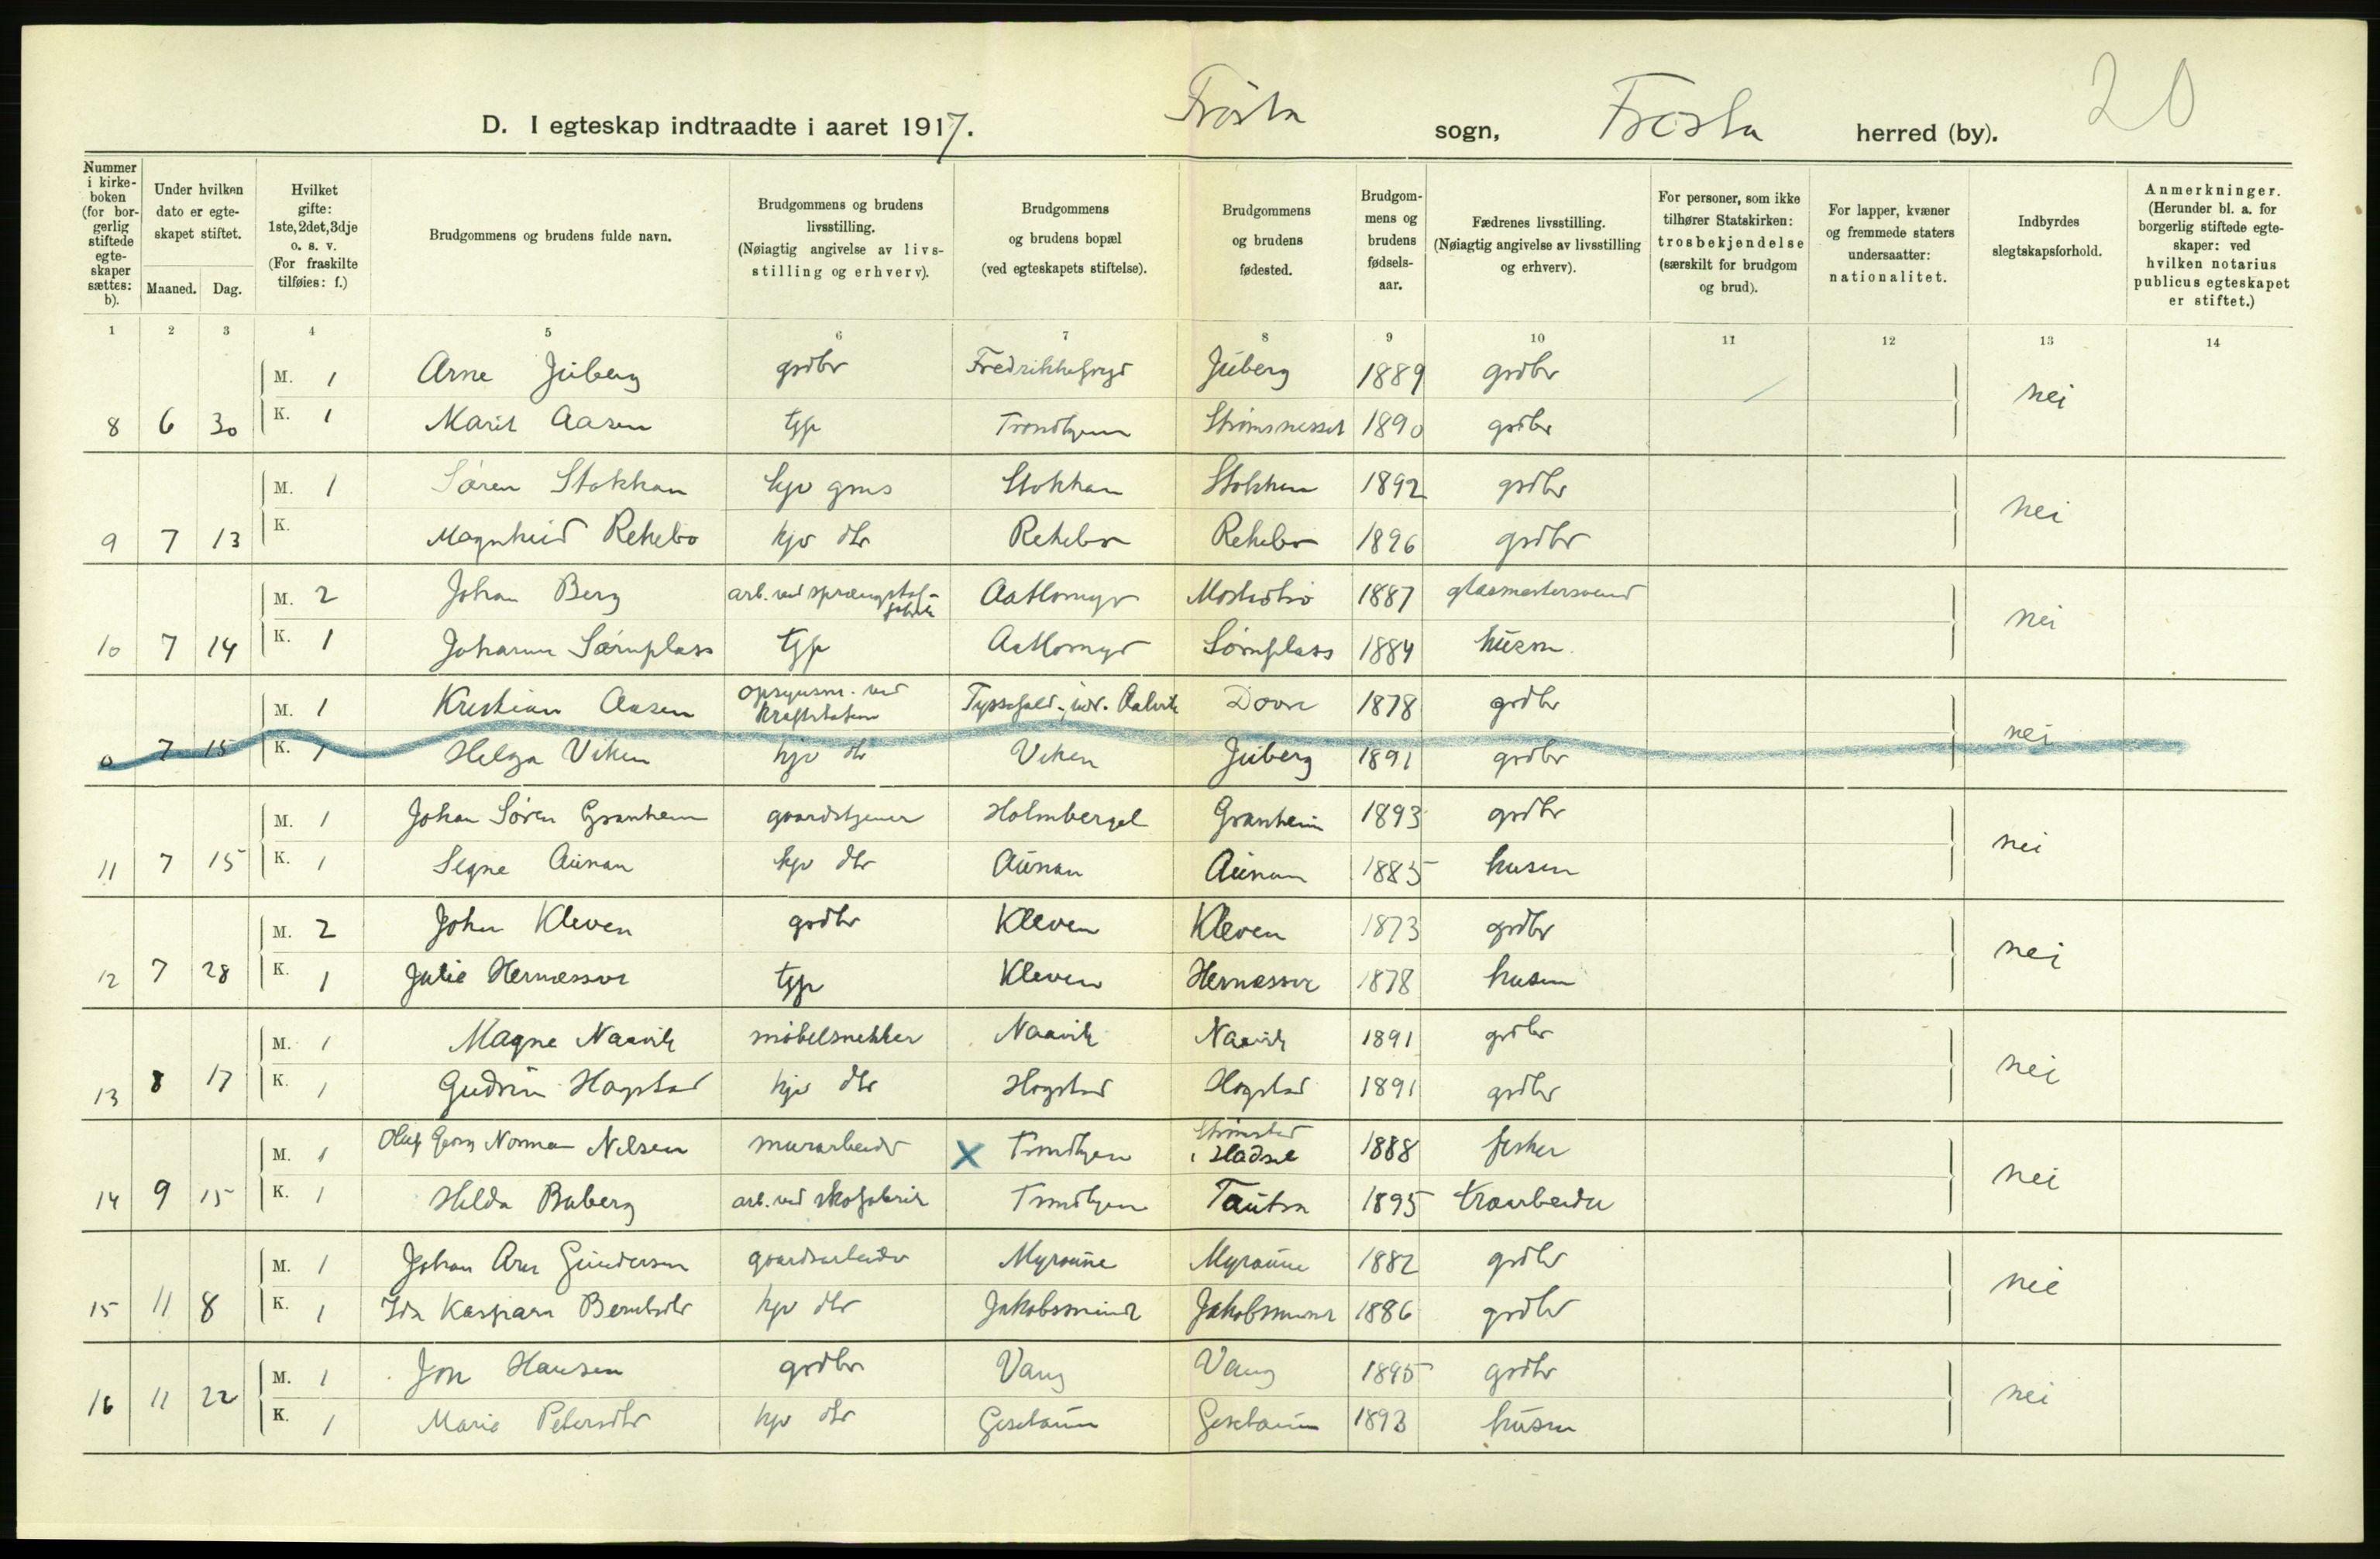 20
D. I egteskap indtraadte i aaret 1917. Frosta sogn, Frosta herred (by).
Nummer i kirke-boken (for bor-gerlig stiftede egte-skaper sættes: b).
Under hvilken dato er egte-skapet stiftet.
Maaned. Dag.
Hvilket gifte: 1ste, 2det, 3dje o. s. v. (For fraskilte tilføies: f.)
Brudgommens og brudens fulde navn.
Brudgommens og brudens livsstilling. (Nøiagtig angivelse av livs-stilling og erhverv).
Brudgommens og brudens bopæl (ved egteskapets stiftelse).
Brudgommens og brudens fødested.
Brudgom-mens og brudens fødsels-aar.
Fædrenes livsstilling. (Nøiagtig angivelse av livsstilling og erhverv).
For personer, som ikke tilhører Statskirken: trosbekjendelse (særskilt for brudgom og brud).
For lapper, kvæner og fremmede staters undersaatter: nationalitet.
Indbyrdes slegtskapsforhold.
Anmerkninger. (Herunder bl. a. for borgerlig stiftede egte-skaper: ved hvilken notarius publicus egteskapet er stiftet.)
1 2 3 4 5 6 7 8 9 10 11 12 13 14
M. 1 Arne Juberg grdbr Juberg 1889 grdbr nei
8 6 30 K. 1 Marit Aasen tjp Trondhjem 1890 grdbr
M. 1 Søren Stokkan Stokkan Stokkan 1892 grdbr nei
9 7 13 K. Magnhild Rekebo hjv dtr Rekebo Rekebo 1896 grdbr
M. 2 Johan Berg arb. ved sprængstof-fabrik 1887 glasmestersvend nei
10 7 14 K. 1 Sørnplass tjp Sørnplass 1884 husm.
M. 1 Kristian Aasen opsynsm. ved Kraftstation Dovre 1878 grdbr nei
0 7 15 K. 1 Helga Viken hjv dtr Viken Juberg 1891 grdbr
M. 1 Johan Søren Granheim gaardstjener Holmberget Granheim 1893 grdbr nei
11 7 15 K. 1 Signe Aunan hjv dtr Aunan Aunan 1885 husm
M. 2 Johan Kleven grdbr Kleven Kleven 1873 grdbr nei
12 7 28 K. 1 Julie Hernæssvе tjp Kleven 1878 husm
M. 1 Magne Naavik møbelsnekker Naavik Naavik 1891 grdbr nei
13 8 17 K. 1 Gudrun Hogstad hjv dtr Hogstad Hogstad 1891 grdbr
M. 1 Olaf Georg Norman Nilsen murarbeider X Trondhjem i Hadsel 1888 fisker nei
14 9 15 K. 1 Hilda Buberg arb. ved skofabrik Trondhjem Tautra 1895
M. 1 Johan Gundersen gaardsarbeider Myraune Myraune 1882 grdbr nei
15 11 8 K. 1 Ida hjv dtr 1886 grdbr
M. 1 Jon Hansen grdbr Vang Vang 1895 grdbr nei
16 11 22 K. 1 Marie Petersdtr hjv dtr 1893 husm